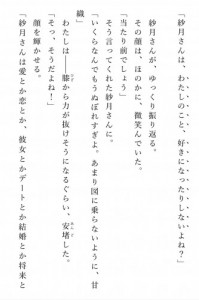 「紗月さんは、わたしのこと、好きになったりしないよね？」
紗月さんが、ゆっくり振り返る。
その顔は、ほのかに、微笑んでいた。
「当たり前でしょう」
そう言ってくれた紗月さんに。
「いくらなんでもうぬぼれすぎよ。あまり図に乗らないように、甘
織」
わたしは――膝から力が抜けそうになるぐらい、安堵した。
「そっ、そうだよね！」
顔を輝かせる。
「紗月さんは愛とか恋とか、彼女とかデートとか結婚とか将来と